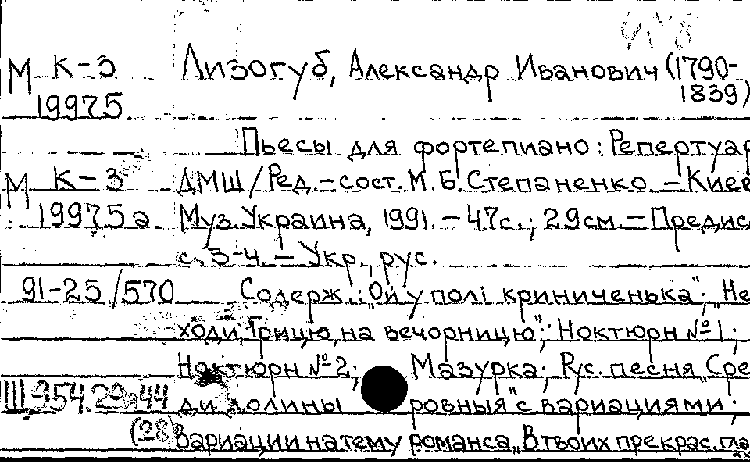 М К-3 Лизогуб, Александр Иванович (1790-
19975 1839)
Пьесы для фортепиано: Репертуар
М К-3 ДМШ/Ред.-сост. М.Б.Степаненко.-Киев
19975а Муз.Украина, 1991.-47с.; 29см.-Предис
с.3-4.-Укр., рус.
91-25/570 Содерж.: "Ой у полі криниченька"; "Не
ходи, Грицю, на вечорницю"; Ноктюрн №1;
Ноктюрн №2; Мазурка; Рус. песня "Сре
ди долины ровныя" с вариациями;
(28) Вариации на тему романса "В твоих прекрас. гла